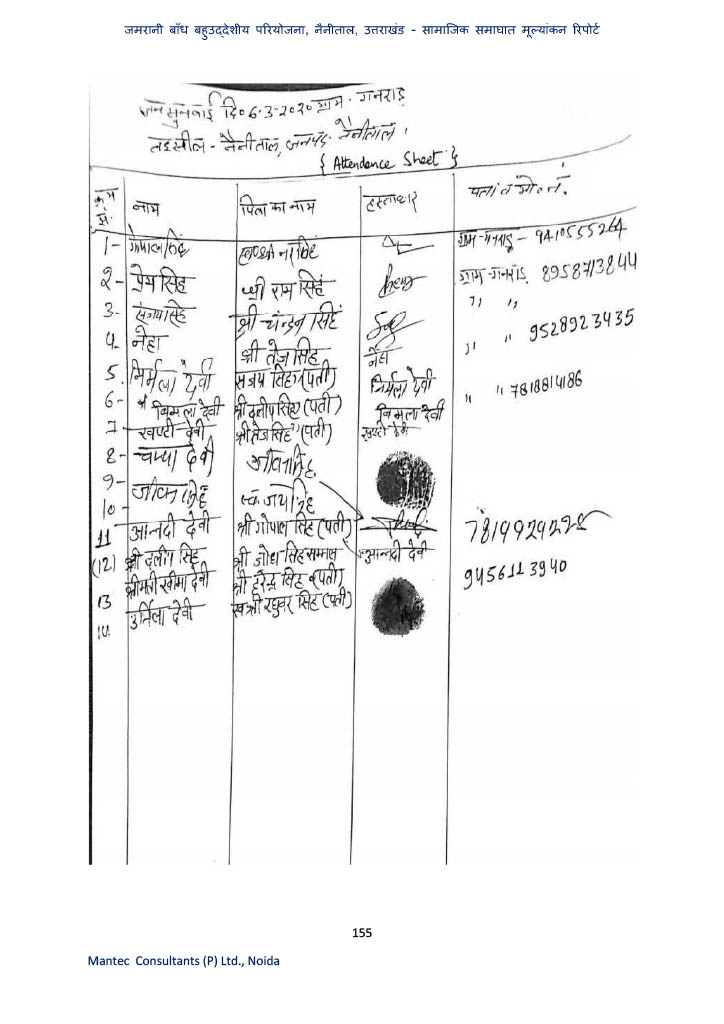 जमरानी बाँध बहुउद्देशीय परियोजना, नैनीताल, उत्तराखंड - सामाजिक समाघात मूल्यांकन रिपोर्ट
जन सुनवाई दि० 6.3.2020 ग्राम - गनराड़
तहसील - नैनीताल, जनपद - नैनीताल ।
{ Attendence Sheet }
क्रम सं. नाम पिता का नाम हस्ताक्षर पता व मो. नं.
1- गोपाल सिंह नर सिंह ग्राम-गनराड़ - 9410555264
2- प्रेम सिंह श्री राम सिंह ग्राम-गनराड़ 8958713844
3- श्री चन्दन सिंह " "
4. नेहा श्री तेज सिंह नेहा " " 9528923435
5. निर्मला देवी संजय सिंह (पती) निर्मला देवी " " 7818814186
6- विमला देवी श्री दलीप सिंह (पती) विमला देवी
7- खण्टी देवी श्री तेज सिंह (पती) खण्टी देवी
8- चम्पा देवी जीवन सिंह
9- जीवन सिंह स्व. जय सिंह
10-
11 आंनदी देवी श्री गोपाल सिंह (पती) आंनदी देवी 7819929228
(12) श्री दलीप सिंह श्री जोध सिंह सम्माल 9456113940
13 श्रीमती खीमा देवी श्री हरेन्द्र सिंह (पती)
14. उर्मिला देवी स्व श्री रघुवर सिंह (पती)
155
Mantec Consultants (P) Ltd., Noida